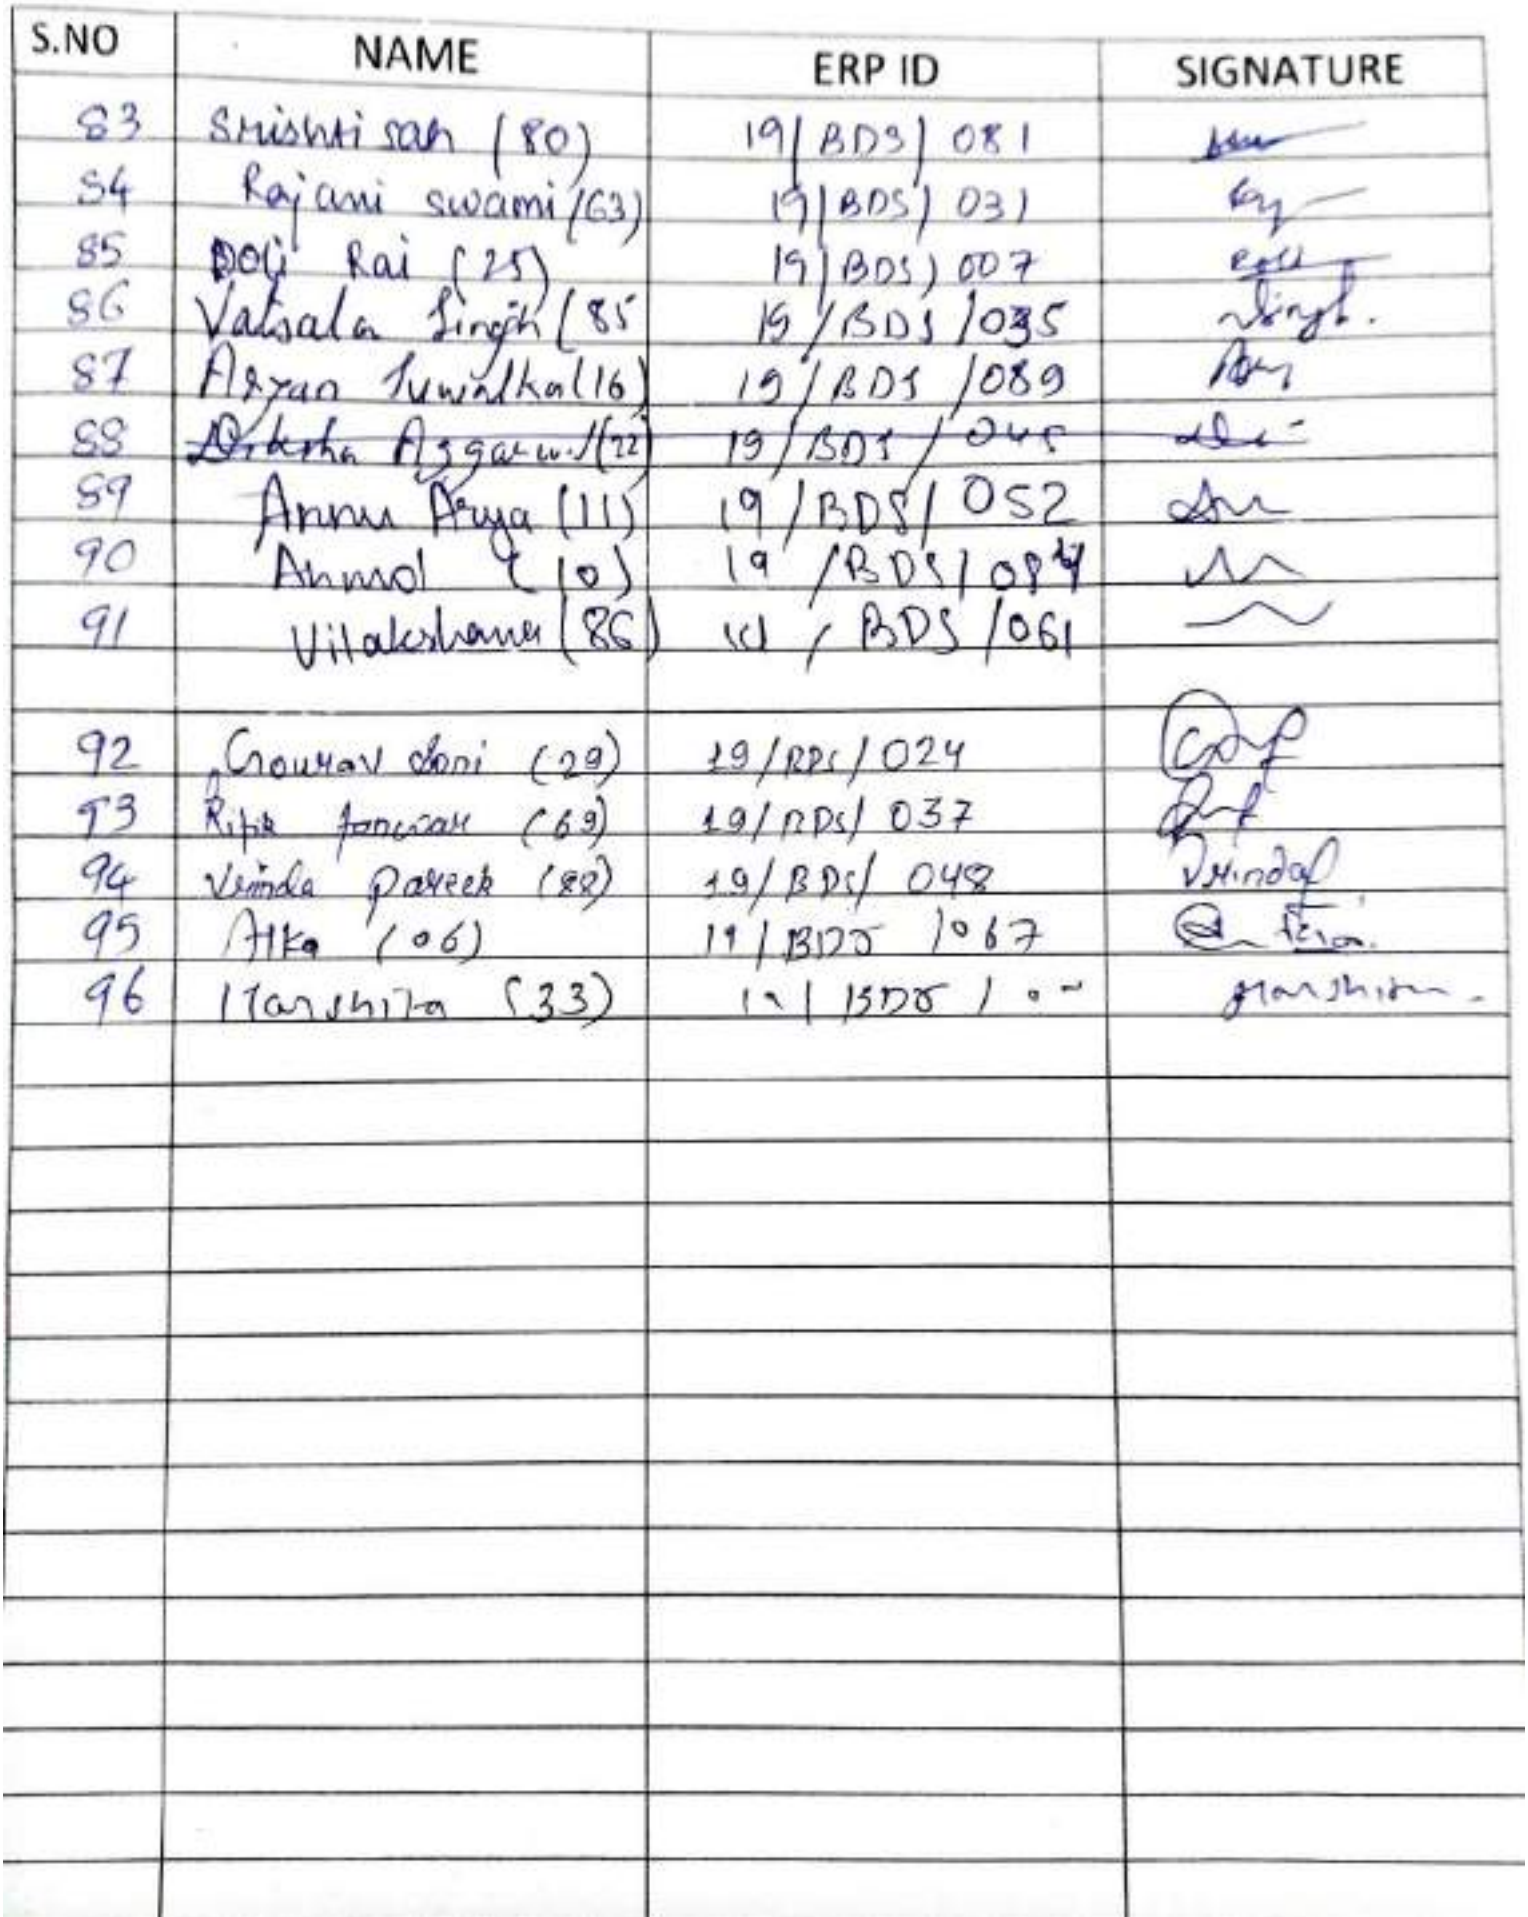 S.NO NAME ERP ID SIGNATURE
83 Srishti sah (80) 19/BDS/081
84 Rajani swami (63) 19/BDS/031
85 Doli Rai (25) 19/BDS/007
86 Vatsala Singh (85 19/BDS/035 Singh.
87 Aryan Suwalka (16) 19/BDS/089
88 Diksha Aggarwal (22) 19/BDS/045
89 Annu Arya (11) 19/BDS/052
90 Anmol (10) 19/BDS/
91 Vilakshana (86) 19/BDS/061
92 Gourav Soni (29) 19/BDS/024
93 (69) 19/BDS/037
94 Vrinda Pareek (88) 19/BDS/048 Vrinda
95 Alka (06) 19/BDS/067
96 Harshita (33) 19/BDS/ Harshita